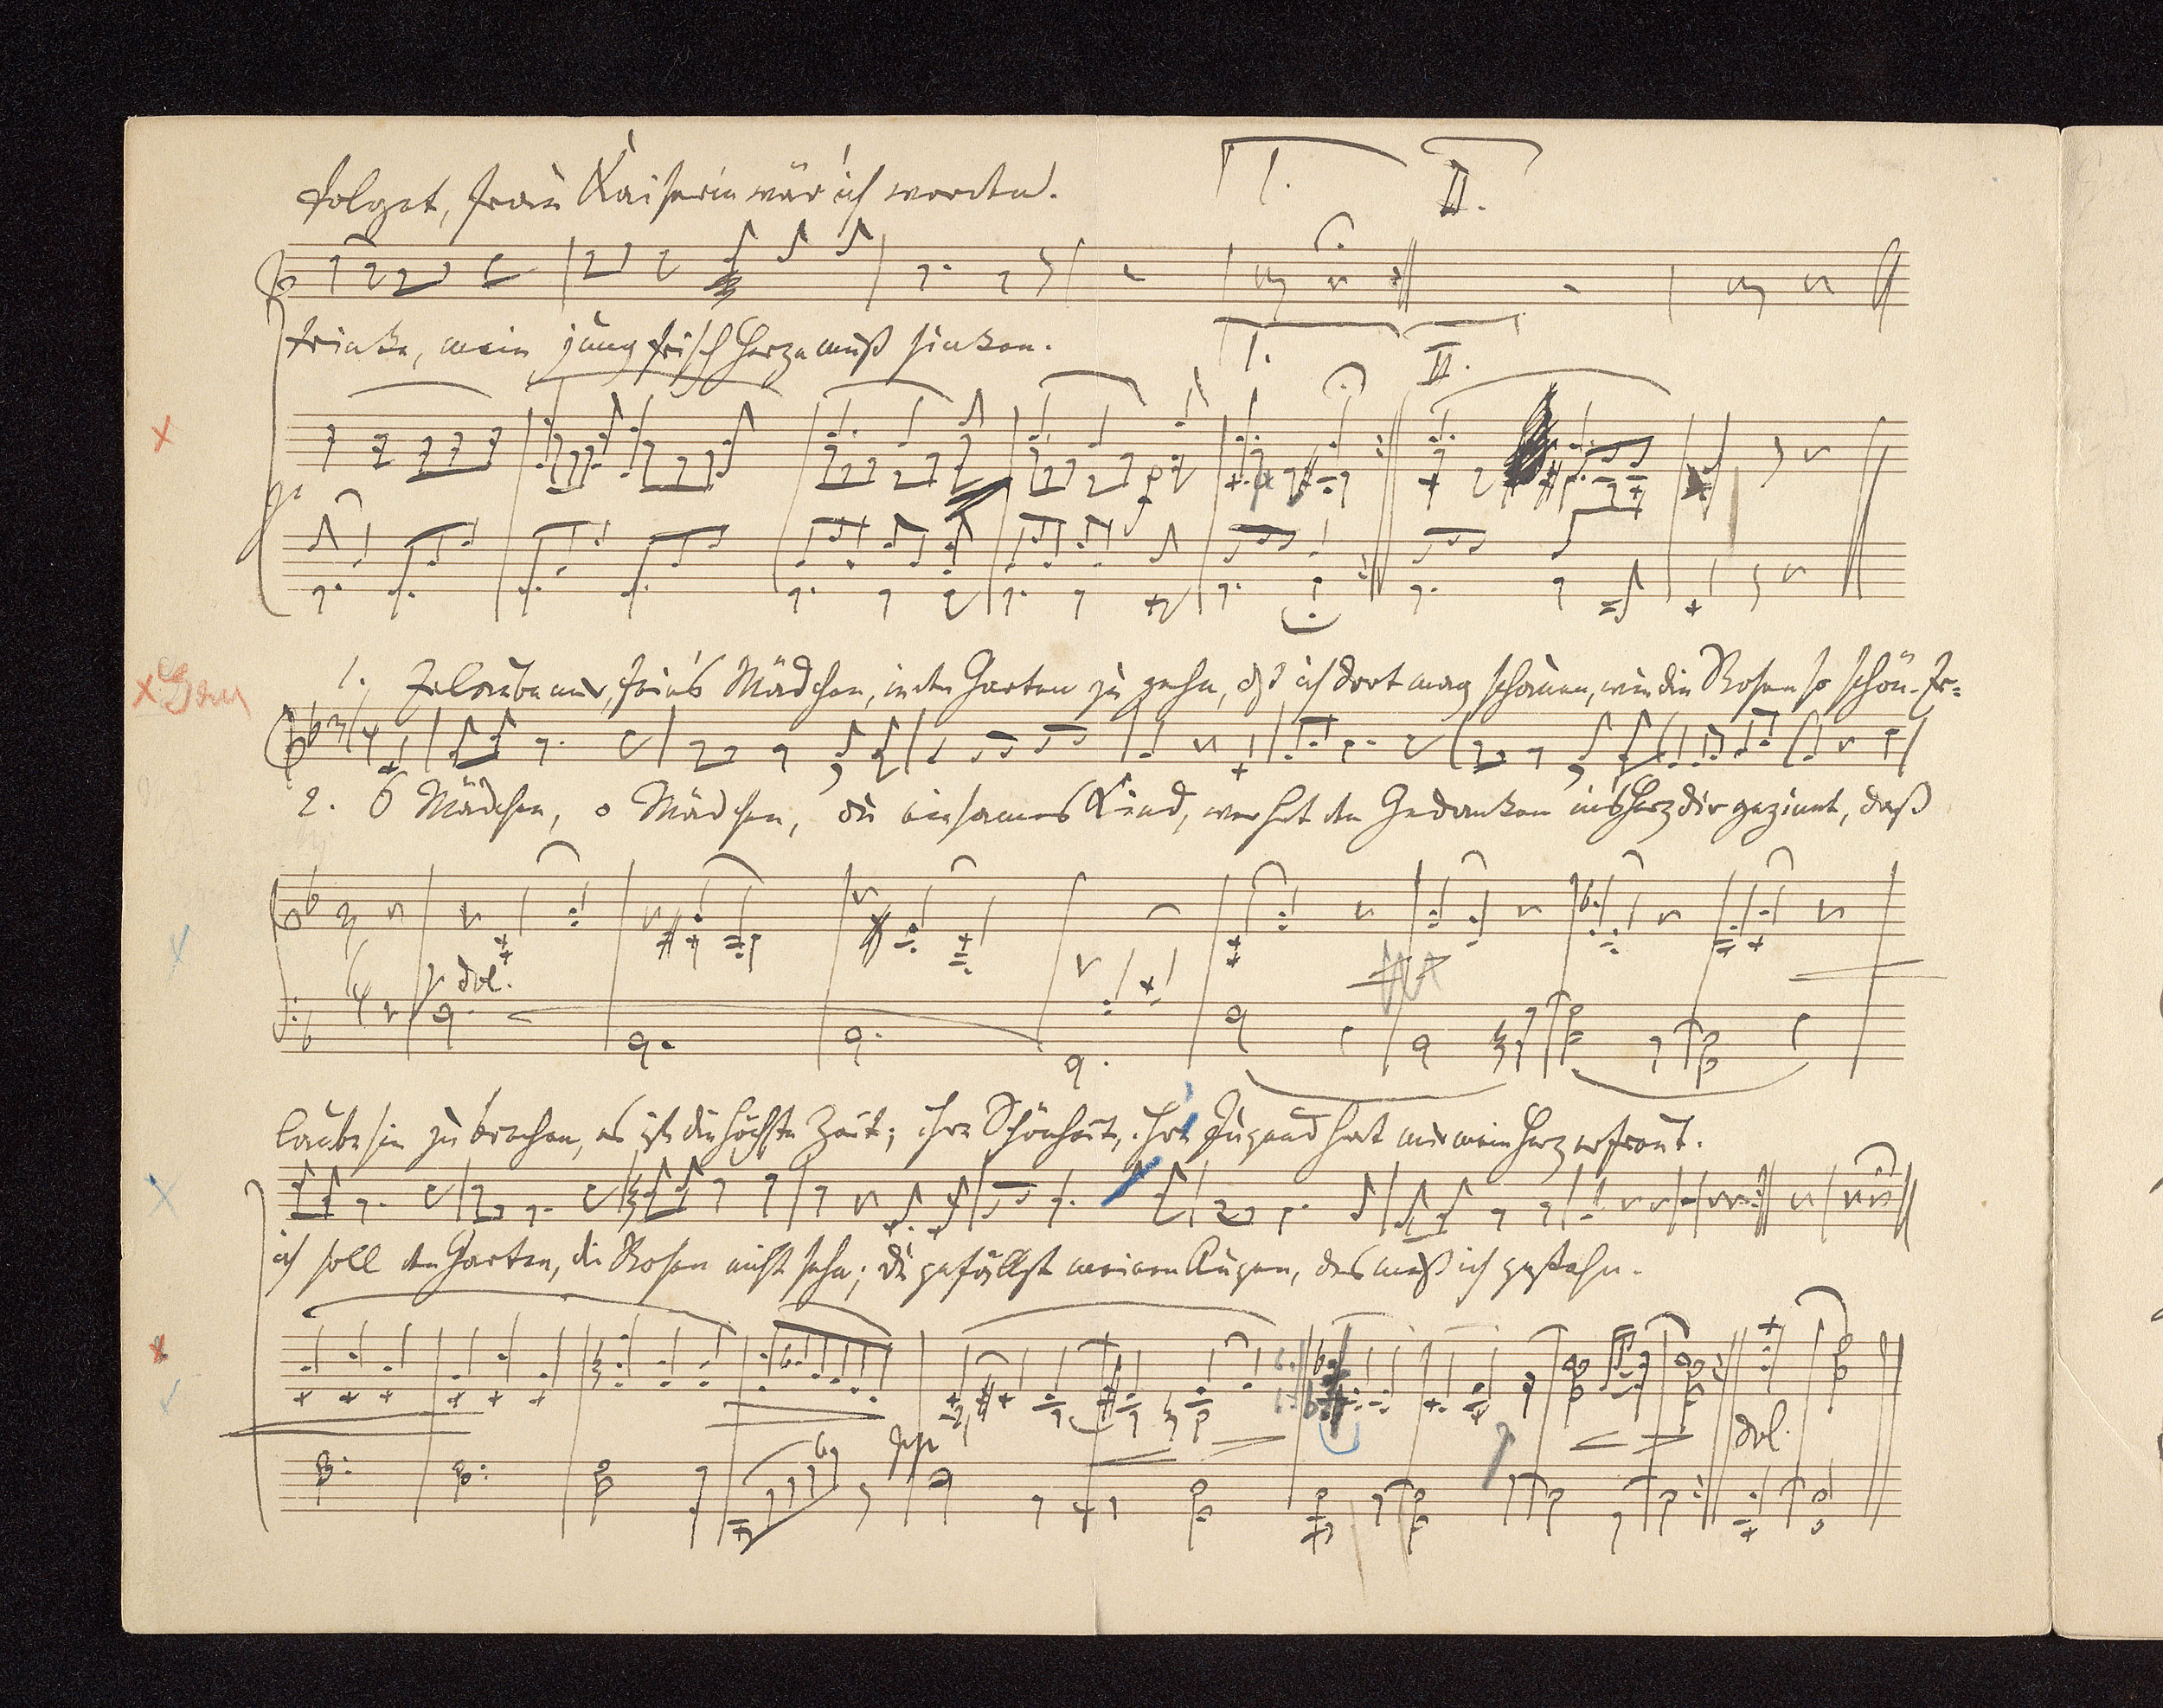 folget, Frau Kaiserin wär ich worden.
I. II.
trinke, mein jung frisch Herze muß sinken.
I. II.
p
1. Erlaube mir, fein's Mädchen, in den Garten zu gehn, dß ich dort mag schauen, wie die Rosen so schön. Er=
2. O Mädchen, o Mädchen, du einsames Kind, wer hat den Gedanken ins Herz dir gezinnt, daß
p dol.
laube sie zu brechen, es ist die höchste Zeit; ihre Schönheit, ihr Jugend hat mir mein Herz erfreut.
ich soll den Garten, die Rosen nicht sehn; du gefällst meinen Augen, das muß ich gestehn.
pp
dol.